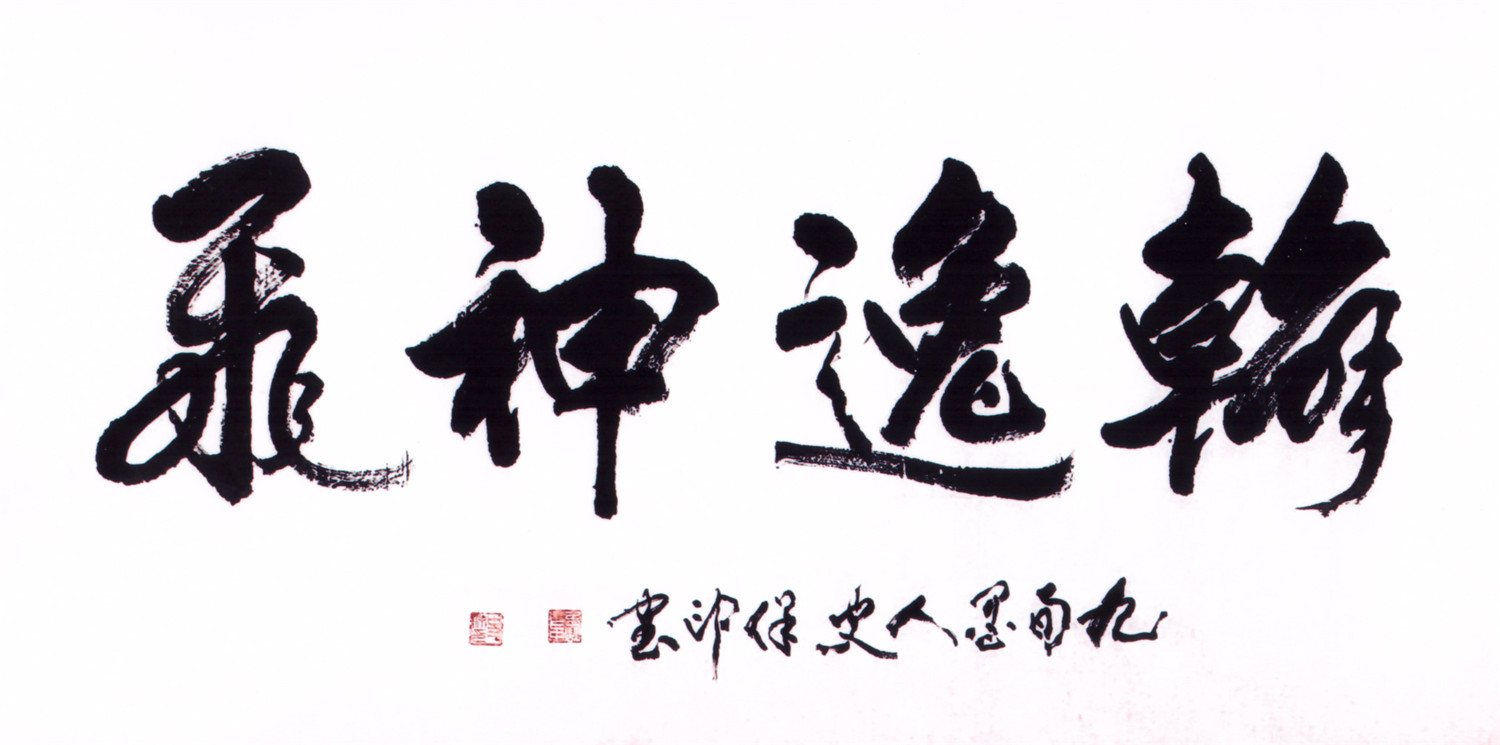 翰逸神飛
九旬墨人史保印書